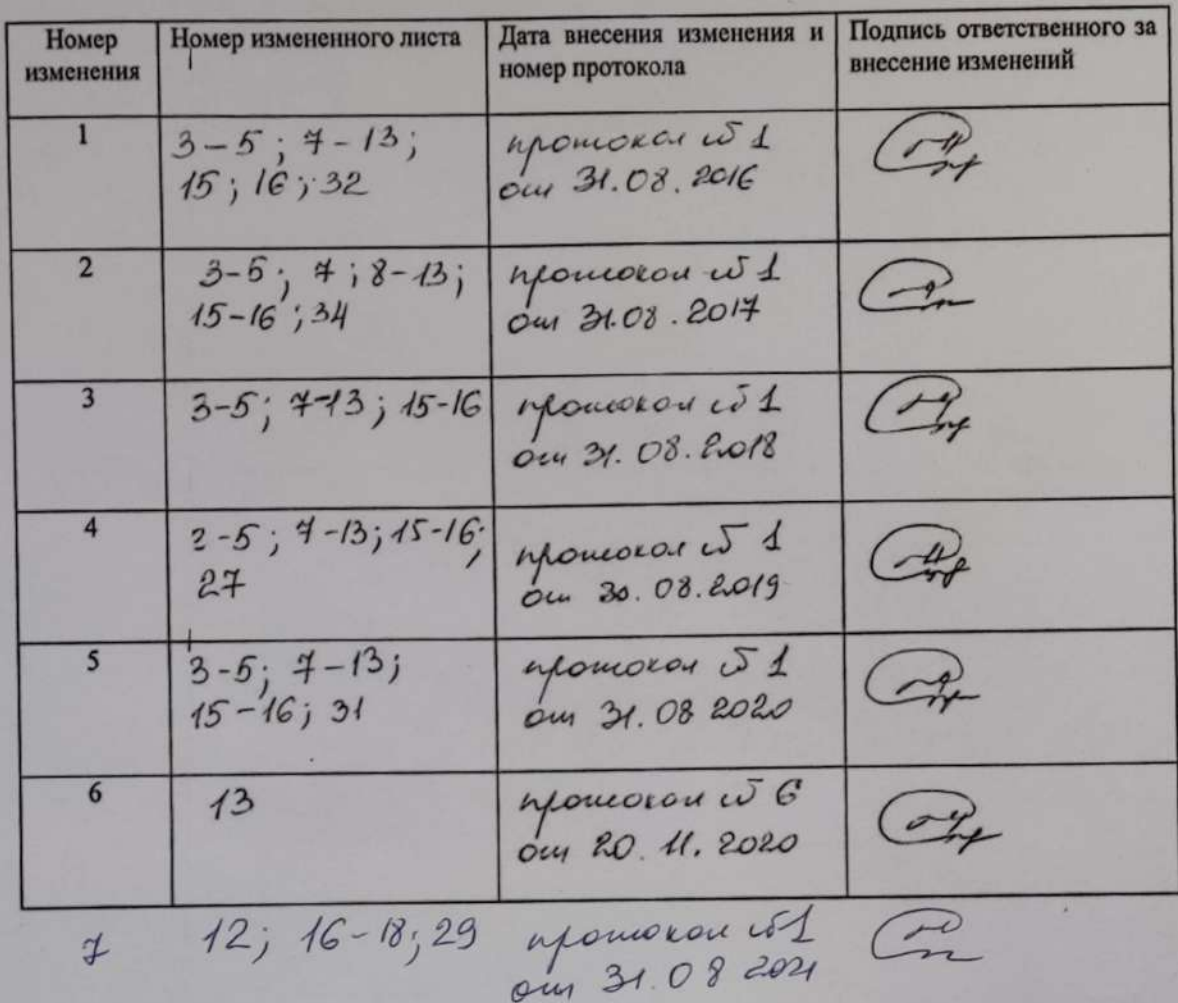 Номер изменения
Номер измененного листа
Дата внесения изменения и номер протокола
Подпись ответственного за внесение изменений
1
3-5; 7-13;
15; 16; 32
протокол № 1
от 31.08.2016
2
3-5; 7; 8-13;
15-16; 34
протокол № 1
от 31.08.2017
3
3-5; 7-13; 15-16
протокол № 1
от 31.08.2018
4
3-5; 7-13; 15-16;
27
протокол № 1
от 30.08.2019
5
3-5; 7-13;
15-16; 31
протокол № 1
от 31.08 2020
6
13
протокол № 6
от 20.11.2020
7
12; 16-18; 29
протокол № 1
от 31.08 2021